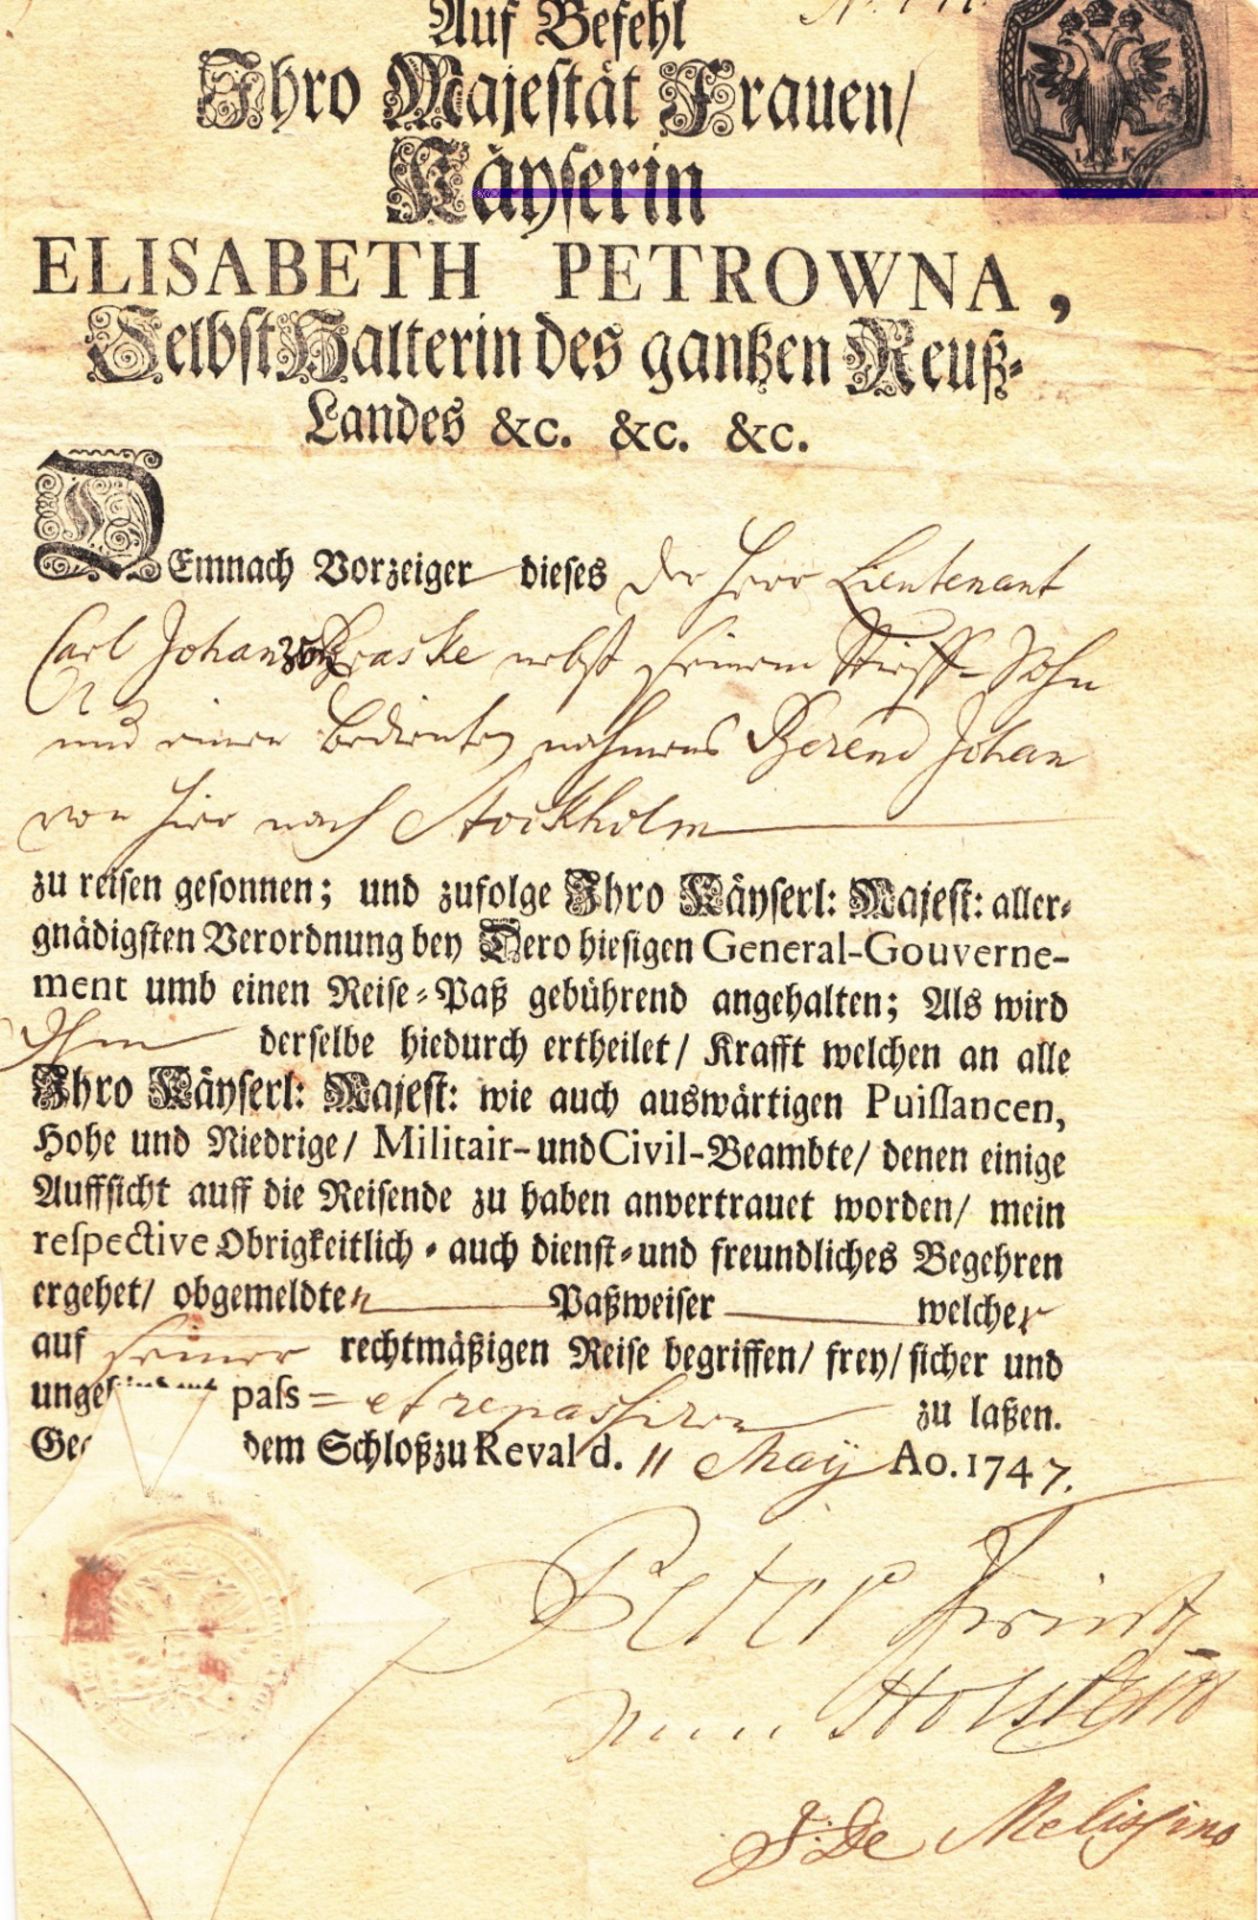 Auf Befehl
Ihro Majestät Frauen/
Käyserin
ELISABETH PETROWNA,
SelbstHalterin des gantzen Reuß-
Landes &c. &c. &c.
DEmnach Vorzeiger dieses der Herr Lieutenant
Carl Johan nebst seinem Stieff-Sohn
und einen Bedienten nahmens Berend Johan
von hier nach Stockholm
zu reisen gesonnen; und zufolge Ihro Käyserl: Majest: aller-
gnädigsten Verordnung bey Dero hiesigen General-Gouverne-
ment umb einen Reise-Paß gebührend angehalten; Als wird
Ihm derselbe hiedurch ertheilet/ Krafft welchen an alle
Ihro Käyserl: Majest: wie auch auswärtigen Puissancen,
Hohe und Niedrige/ Militair- und Civil-Beambte/ denen einige
Auffsicht auff die Reisende zu haben anvertrauet worden/ mein
respective Obrigkeitlich- auch dienst- und freundliches Begehren
ergehet/ obgemeldten Paßweiser welcher
auf seiner rechtmäßigen Reise begriffen/ frey/ sicher und
pass= et repassiren zu laßen.
dem Schloß zu Reval d. 11 May Ao. 1747.
Peter
Holstein
De Melissino